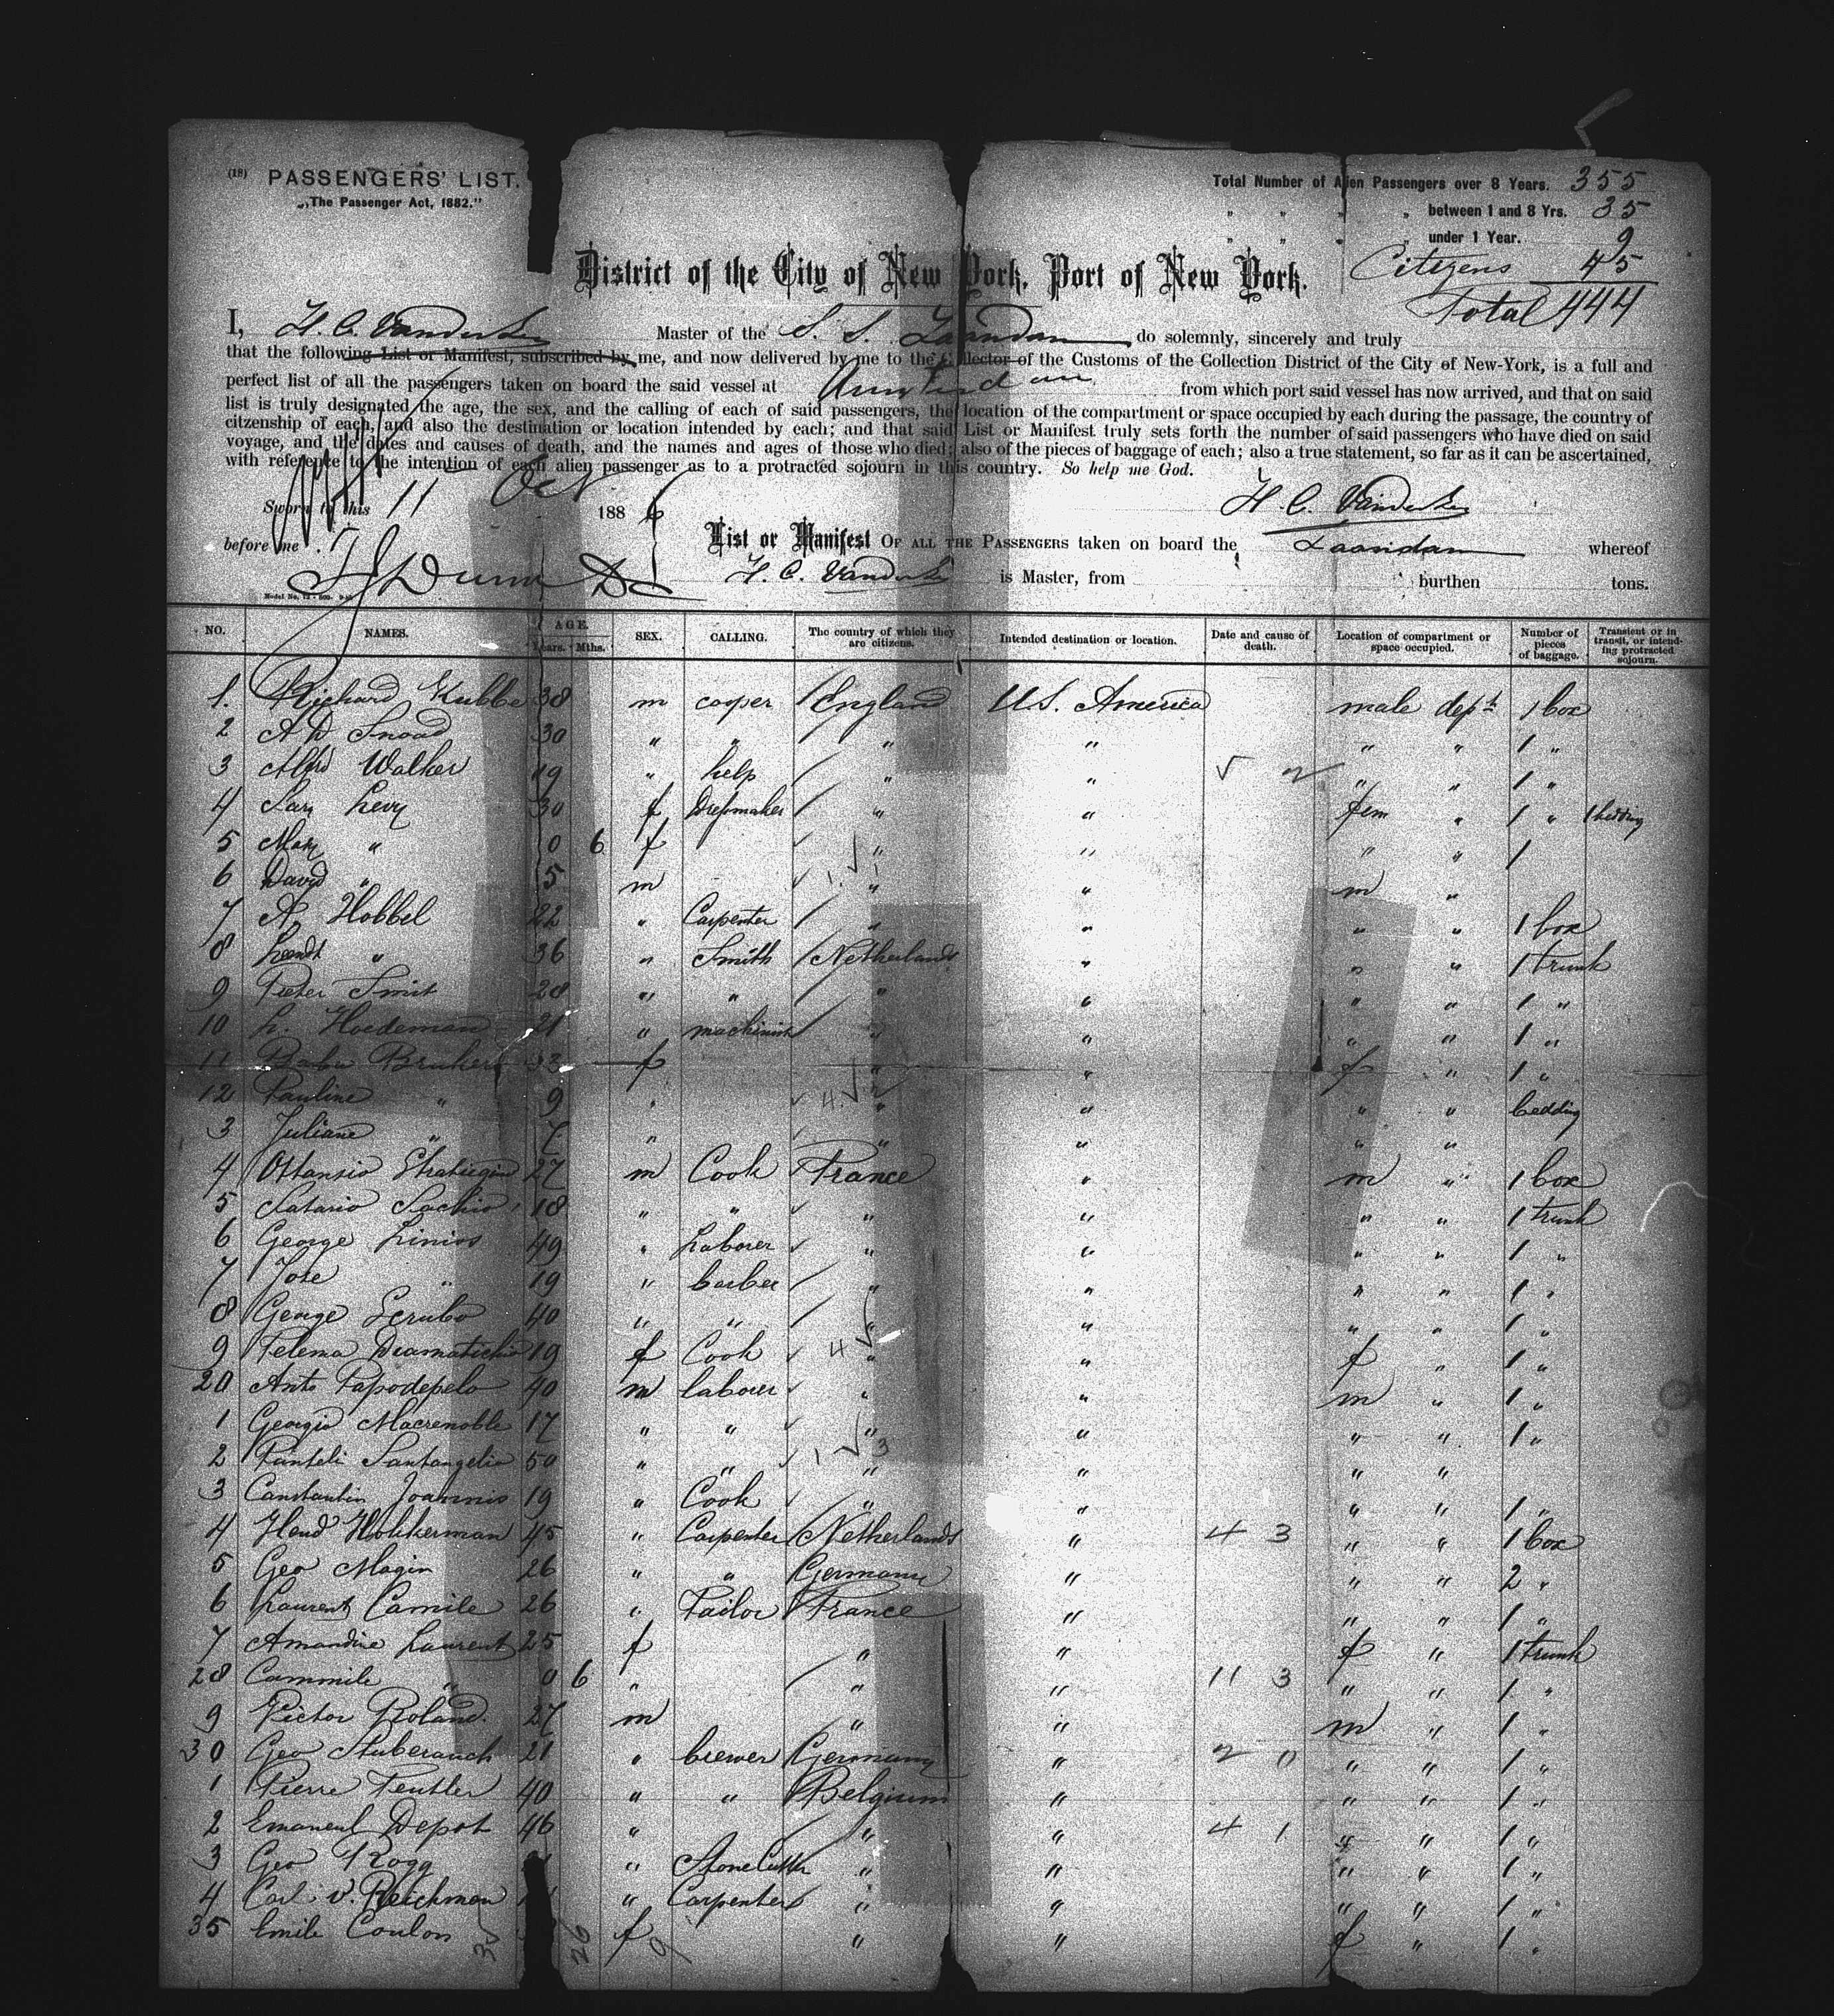 (18) PASSENGERS' LIST.
„The Passenger Act, 1882."
Total Number of Alien Passengers over 8 Years. 355
" " " " between 1 and 8 Yrs. 35
" " " " under 1 Year. 9
Citizens 45
Total 444
District of the City of New York, Port of New York.
I, H. C. Vander Master of the S. S. Zaandam do solemnly, sincerely and truly
that the following List or Manifest, subscribed by me, and now delivered by me to the Collector of the Customs of the Collection District of the City of New-York, is a full and
perfect list of all the passengers taken on board the said vessel at Amsterdam from which port said vessel has now arrived, and that on said
list is truly designated the age, the sex, and the calling of each of said passengers, the location of the compartment or space occupied by each during the passage, the country of
citzenship of each, and also the destination or location intended by each; and that said List or Manifest truly sets forth the number of said passengers who have died on said
voyage, and the dates and causes of death, and the names and ages of those who died; also of the pieces of baggage of each; also a true statement, so far as it can be ascertained,
with reference to the intention of each alien passenger as to a protracted sojourn in this country. So help me God.
Sworn to this 11 Oct 1886
H. C.
before me T J Dunn
List or Manifest OF ALL THE PASSENGERS taken on board the Zaandam whereof
H. C. is Master, from burthen tons.
NO. NAMES. AGE. Years. Mths. SEX. CALLING. The country of which they are citizens. Intended destination or location. Date and cause of death. Location of compartment or space occupied. Number of pieces of baggage. Transient or in transit, or intending protracted sojourn.
1. Richard Kubbe 38 m cooper England U.S. America male dept 1 box
2 A D Snoad 30 " " " " " " 1 "
3 Alfrd Walker 19 " help " " " " 1 "
4 Sary Levy 30 f Dressmaker " " fem " 1 " 1 bedding
5 Mary " 0 6 f " " " " 1
6 David " 5 m " " m "
7 A Hobbel 22 " Carpenter " " " " 1 box
8 Leendt " 36 " Smith Netherlands " " " 1 trunk
9 Pieter Smit 28 " " " " " " 1 "
10 L. Hoedeman 21 " machinist " " " " 1 "
11 Babu Brukert 33 f " " f " 1 "
12 Pauline " 9 " " " " " bedding
3 Juliane " 7 " " " " "
4 Ottansio 27 m Cook France " m " 1 box
5 Satario Sachio 18 " " " " " " 1 trunk
6 George Linios 49 " Laborer " " " " 1 "
7 Jose " 19 " barber " " " " 1 "
8 George Scrubo 40 " " " " " " 1 "
9 Telema 19 f Cook " " f " 1 "
20 Anto Papodepelo 40 m laborer " " m " 1 "
1 Georgio Macrenoble 17 " " " " " " 1 "
2 Panteli Santangelio 50 " " " " " "
3 Constantin Joannis 19 " Cook " " " " 1 "
4 Hend Hokkerman 45 " Carpenter Netherlands " 4 3 " " 1 box
5 Geo Magin 26 " " Germany " " " 2 "
6 Laurent Camile 26 " Tailor France " " " 1 "
7 Amandine Laurent 25 f " " f " 1 trunk
28 Cammile " 0 6 " " " 11 3 " " 1 "
9 Victor Roland 27 m " " m " 1 "
30 Geo Stuberauch 21 " brewer Germany " 2 0 " " 1 "
1 Pierre Teutler 40 " " Belgium " " " 1 "
2 Emaneul Depot 46 " " " 4 1 " " 1 "
3 Geo Rogg " Stone Cutter " " " " 1 "
4 Carl v. Reichman " Carpenter " " " " 1 "
35 Emile Coulon f " " f " 1 "